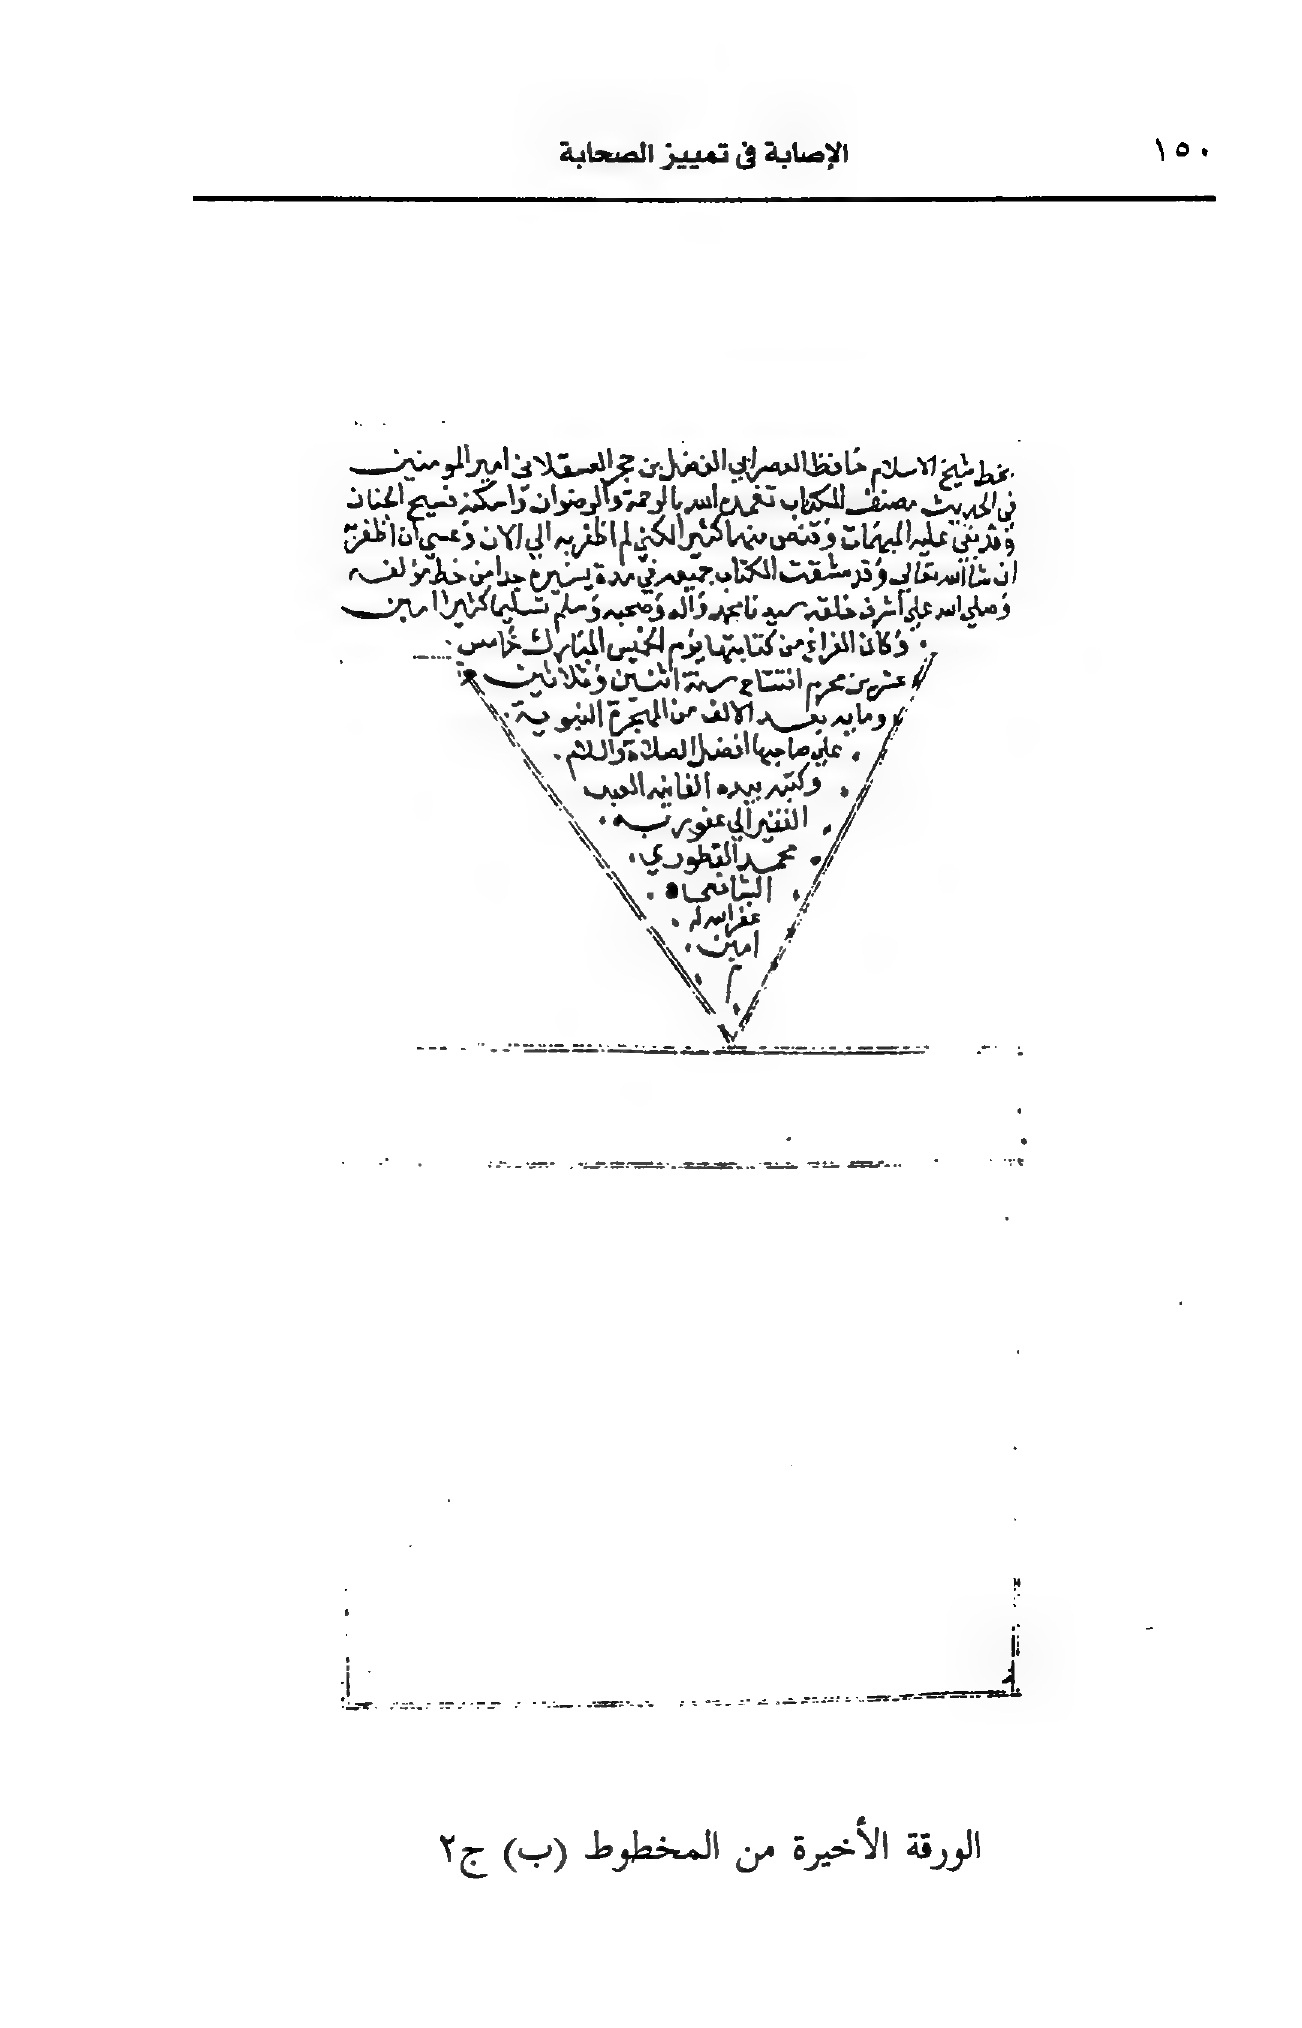 ١٥٠
الإصابة في تمييز الصحابة
بخط شيخ الاسلام حافظ العصر ابي الفضل بن حجر العسقلاني امير المومنين
في الحديث مصنف الكتاب تغمده الله بالرحمة والرضوان واسكنه فسيح الجنان
وقد بقي عليه المبهمات وقتنص منها كثيرا لكني لم اظفر به الي الان وعسي ان اظفر به
ان شا الله تعالي وقد مشقت الكتاب جميعه في مدة يسيرة جدا من خط مولفه
وصلي الله علي اشرف خلقه سيدنا محمد واله وصحبه وسلم تسليما كثيرا امين
وكان الفراغ من كتابتها يوم الخميس المبارك خامس
عشر من محرم افتتاح سنة اثنين وثلاثين
ومايه بعد الالف من الهجرة النبوية
علي صاحبها افضل الصلاة والسلام
وكتبه بيده الفانيه العبد
الفقير الي عفو ربه
محمد القطوري
الشافعي
غفر الله له
امين
م
الورقة الأخيرة من المخطوط (ب) ج٢